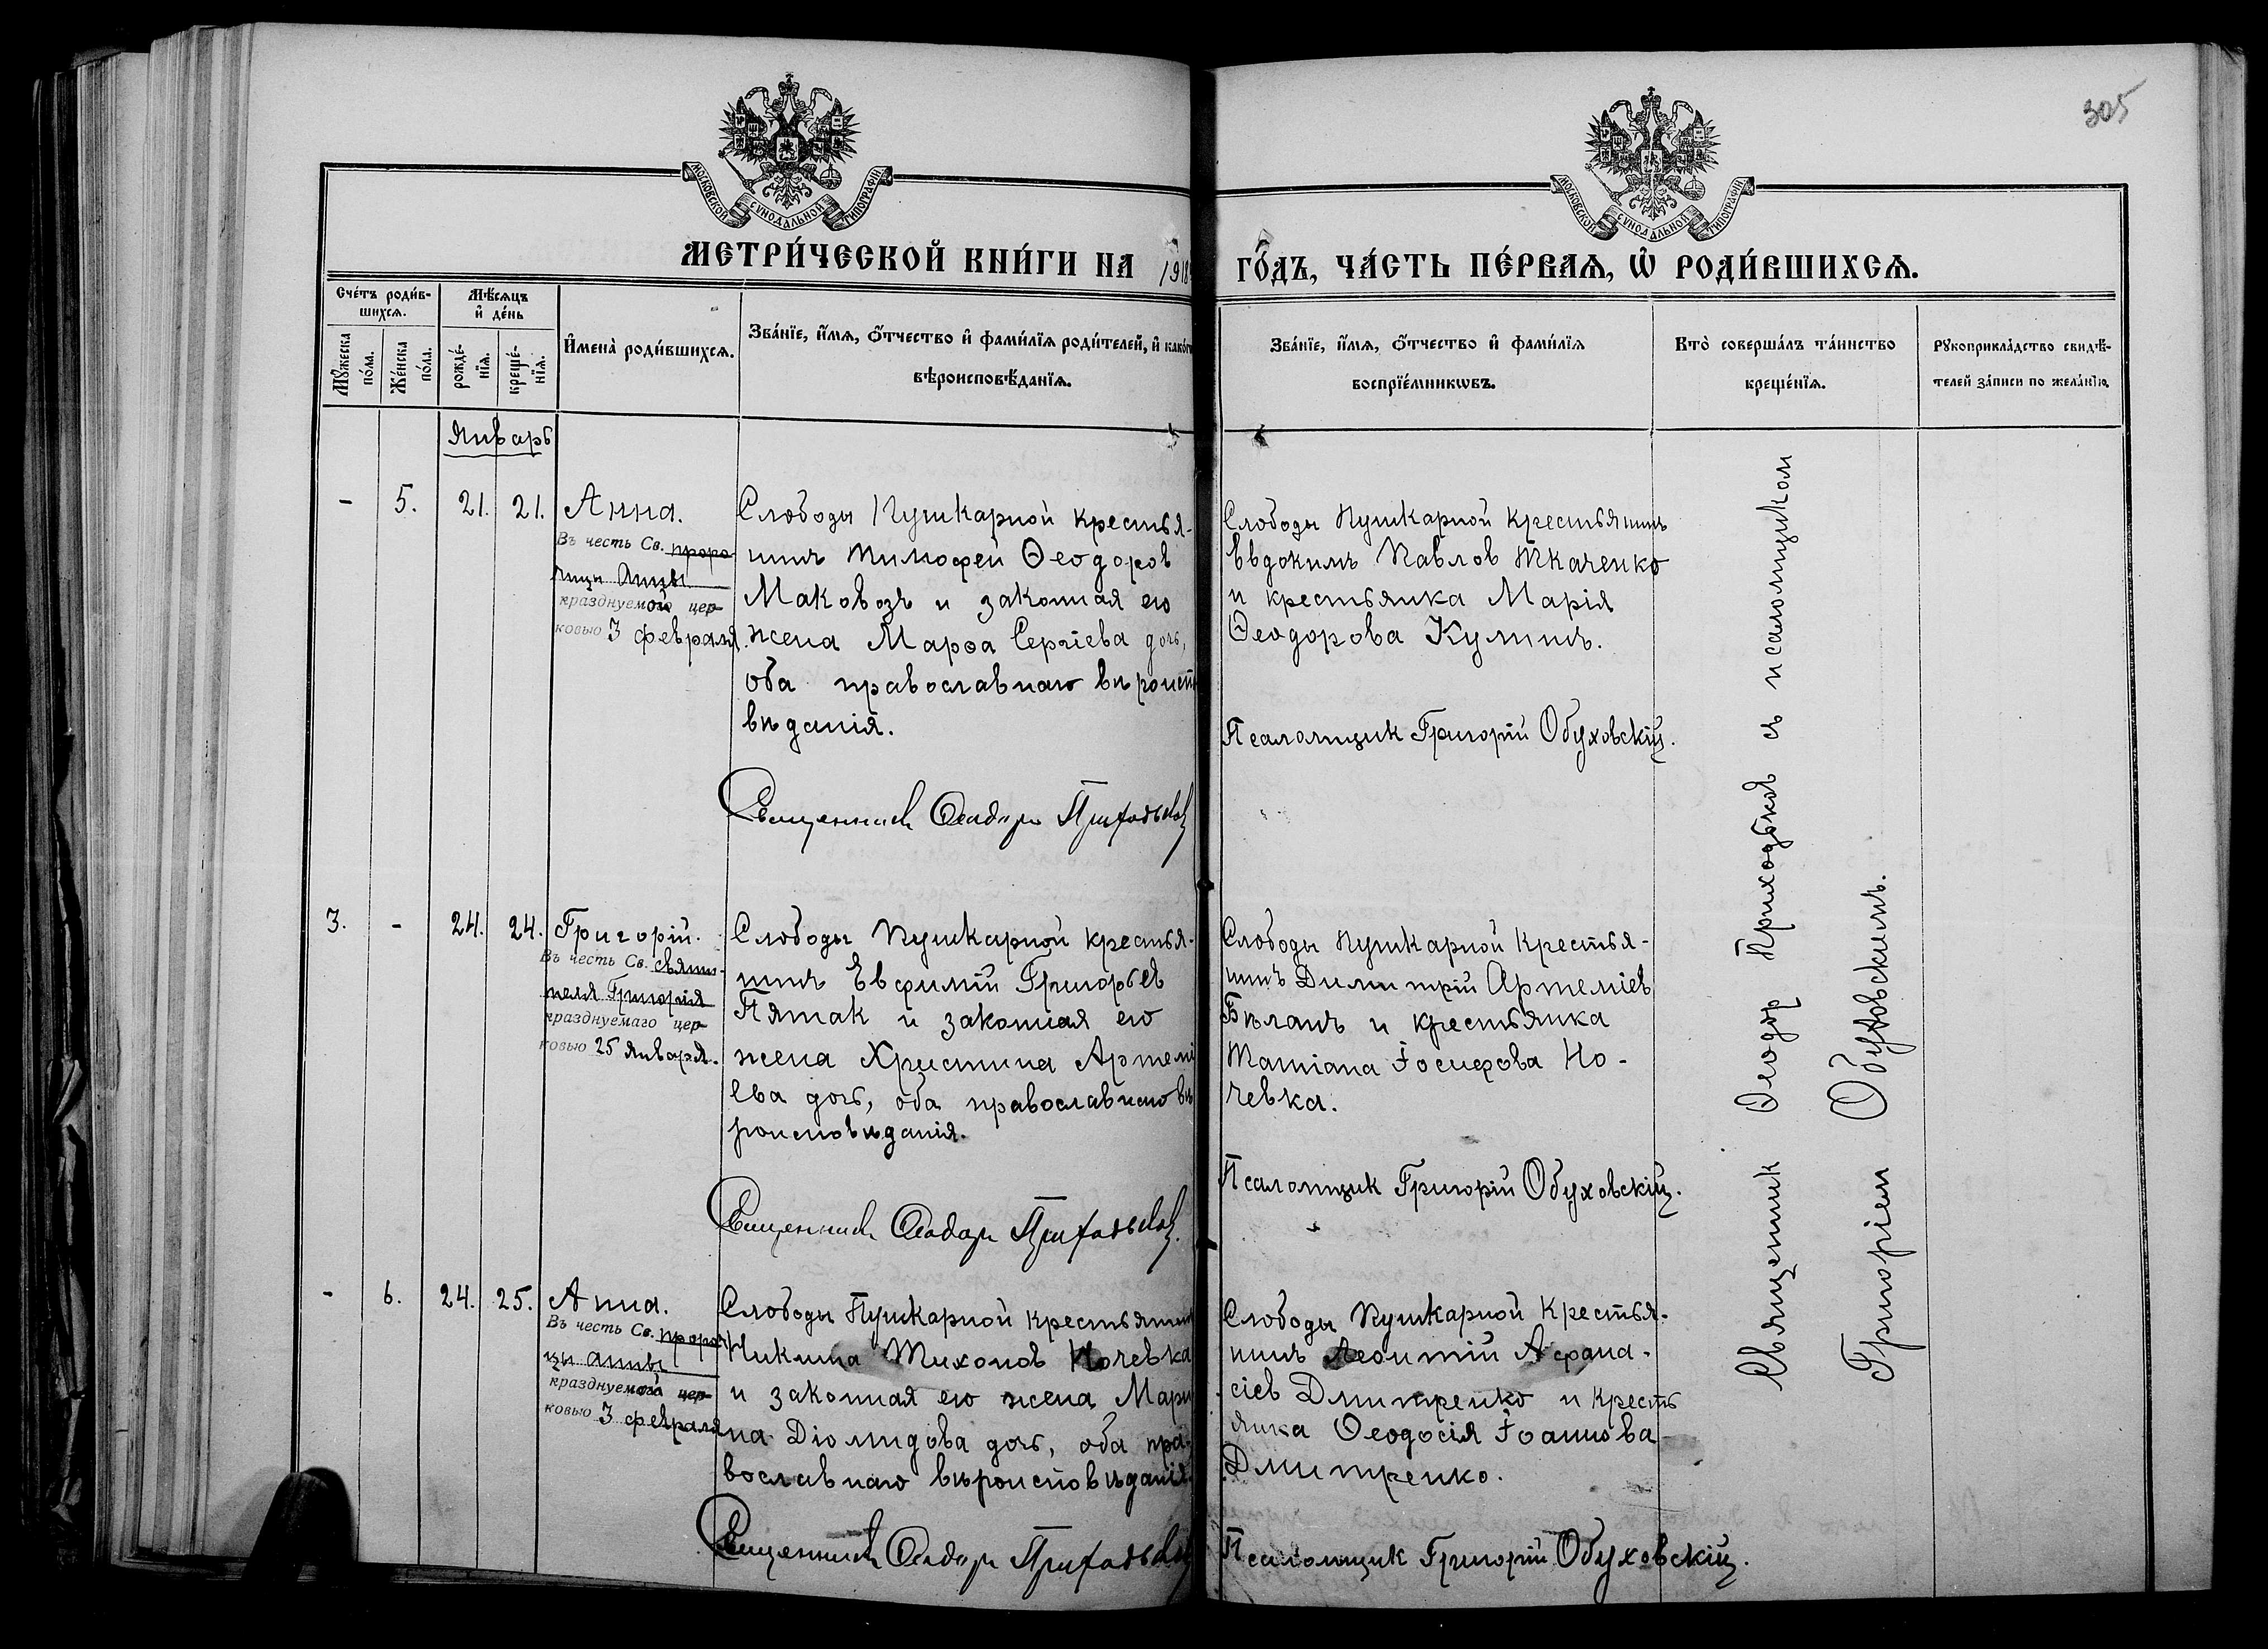 305
МОСКОВСКОЙ СУНОДАЛЬНОЙ ТИПОГРАФІИ
МОСКОВСКОЙ СУНОДАЛЬНОЙ ТИПОГРАФІИ
МЕТРИ́ЧЕСКОЙ КНИ́ГИ НА 1918 ГО́ДЪ, ЧА́СТЬ ПЕ́РВАѦ, Ѡ҆ РОДИ́ВШИХСѦ.
Сче́тъ роди́в-
шихсѧ.
Мѣ́сѧцъ
и҆ де́нь
Мꙋ́жеска
по́ла.
Же́нска
по́ла.
рожде́-
нїѧ.
креще́-
нїѧ.
И҆мена̀ роди́вшихсѧ.
Зва́нїе, и҆́мѧ, ѻ҆́тчество и҆ фами́лїѧ роди́телей, и҆ како́гѡ
вѣроисповѣ́данїѧ.
Зва́нїе, и҆́мѧ, ѻ҆́тчество и҆ фами́лїѧ
воспрїе́мникѡвъ.
Кто̀ соверша́лъ та́инство
креще́нїѧ.
Рꙋкоприкла́дство свидѣ́-
телей за́писи по жела́нїю.
Январь
- 5. 21. 21. Анна.
Въ честь Св. проро-
чицы Анны
празднуемой цер-
ковью 3 февраля.
Слободы Пушкарной крестья-
нинъ Тимофей Ѳеодоров
Маковозъ и законная его
жена Марѳа Сергіева дочь,
оба православнаго вѣроиспо
вѣданія.
Священникъ Ѳеодоръ Приходьков
Слободы Пушкарной Крестьянинъ
Евдокимъ Павлов Ткаченко
и крестьянка Марія
Ѳеодорова Кулишъ.
Псаломщик Григорій Обуховскій.
3. - 24. 24. Григорій.
Въ честь Св. Святи-
теля Григорія
празднуемаго цер-
ковью 25 Января.
Слободы Пушкарной крестья-
нинъ Евфимій Григорьев
Пятак и законная его
жена Христина Артемі
ева дочь, оба православнаго вѣ
роисповѣданія.
Священникъ Ѳеодоръ Приходьков.
Слободы Пушкарной Крестья-
нинъ Димитрій Артеміев
Бѣланъ и крестьянка
Татіана Іосифова Но-
чевка.
Псаломщик Григорій Обуховскій.
- 6. 24. 25. Анна.
Въ честь Св. пророчи
цы Анны
празднуемой цер-
ковью 3 февраля
Слободы Пушкарной крестьянинъ
Никита Тихонов Ночевка
и законная его жена Мари
на Діомидова дочь, оба пра-
вославнаго вѣроисповѣданія.
Священникъ Ѳеодоръ Приходьков
Слободы Пушкарной Крестья-
нинъ Леонтій Афана-
сіев Дмитренко и кресть
янка Ѳеодосія Іоаннова
Дмитренко.
Псаломщик Григорій Обуховскій.
Священник Ѳеодор Приходьков съ псаломщиком
Григоріем Обуховскимъ.